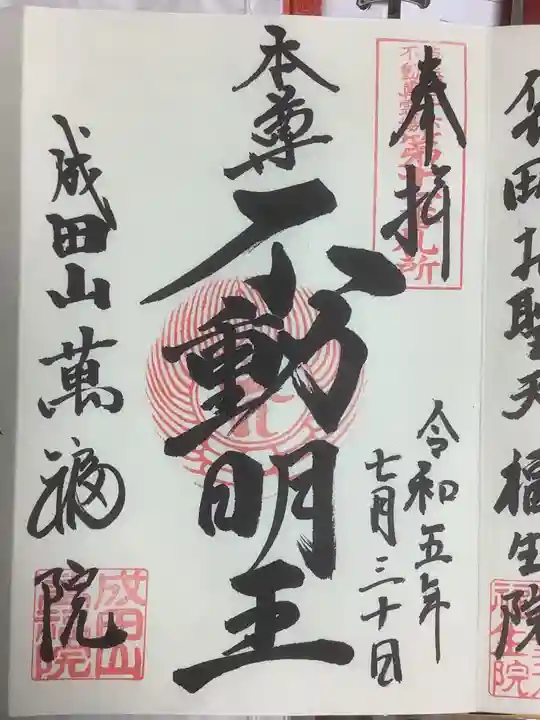 奉拝
令和五年
七月三十日
本尊
不動明王
成田山萬福院
成田山
萬福院
袋田お聖天福生院
福生院